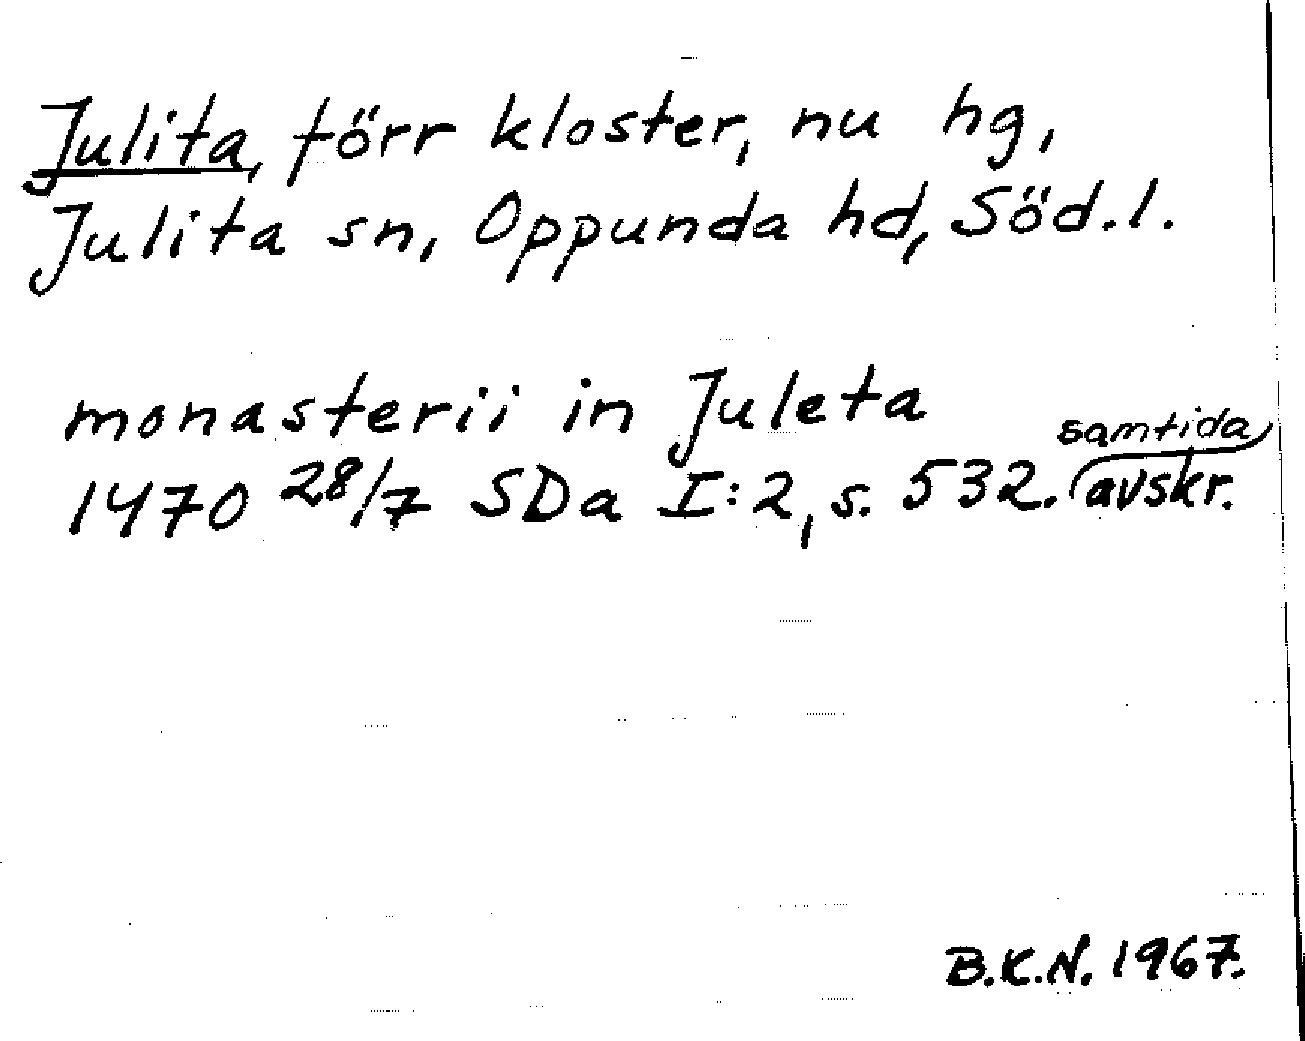 Julita, förr kloster, nu hg,
Julita sn, Oppunda hd, Söd.l.
monasterii in Juleta
1470 28/7 SDa I:2, s. 532. samtida avskr.
B.K.N. 1967.